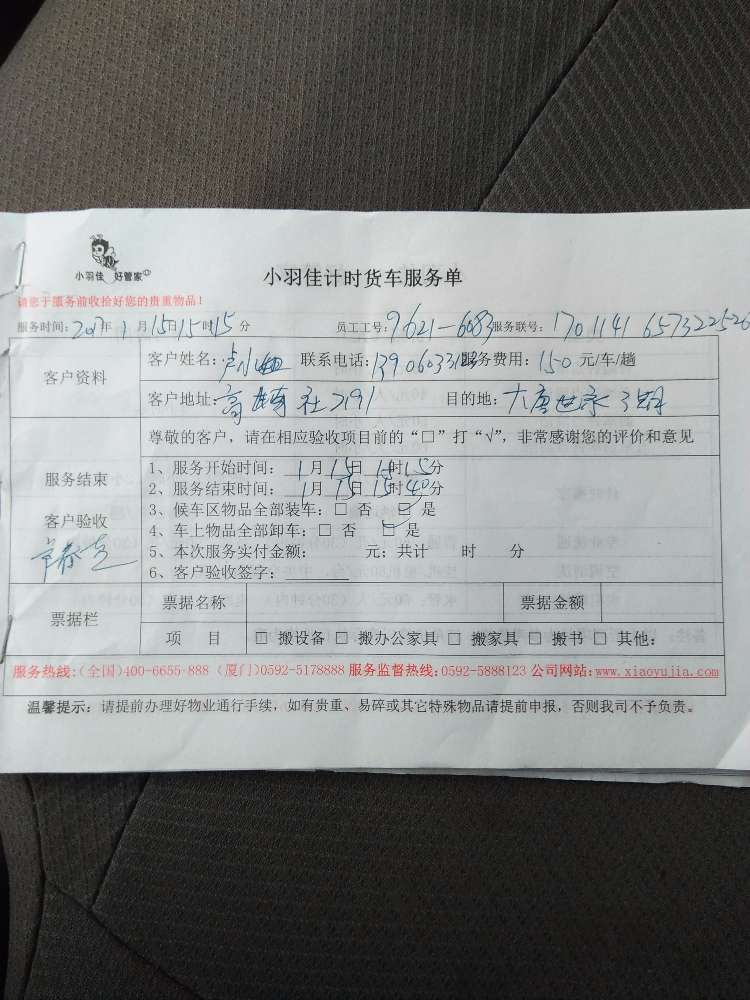 小羽佳 好管家
小羽佳计时货车服务单
请您于服务前收拾好您的贵重物品!
服务时间:2017年1月15日15时15分 员工工号:9621-6083服务联号:1701141657322526
客户资料
客户姓名:卢小姐 联系电话: 服务费用:150元/车/趟
客户地址: 社2191 目的地:大唐世家3期
尊敬的客户,请在相应验收项目前的“□”打“√”,非常感谢您的评价和意见
服务结束
客户验收
1、服务开始时间:1月15日15时15分
2、服务结束时间:1月15日15时40分
3、候车区物品全部装车:□ 否 ☑ 是
4、车上物品全部卸车:□ 否 ☑ 是
5、本次服务实付金额: 元;共计 时 分
6、客户验收签字:
票据栏
票据名称 票据金额
项 目 □ 搬设备 □ 搬办公家具 □ 搬家具 □ 搬书 □ 其他:
服务热线:(全国)400-6655-888 (厦门)0592-5178888 服务监督热线:0592-5888123 公司网站:www.xiaoyujia.com
温馨提示:请提前办理好物业通行手续,如有贵重、易碎或其它特殊物品请提前申报,否则我司不予负责。